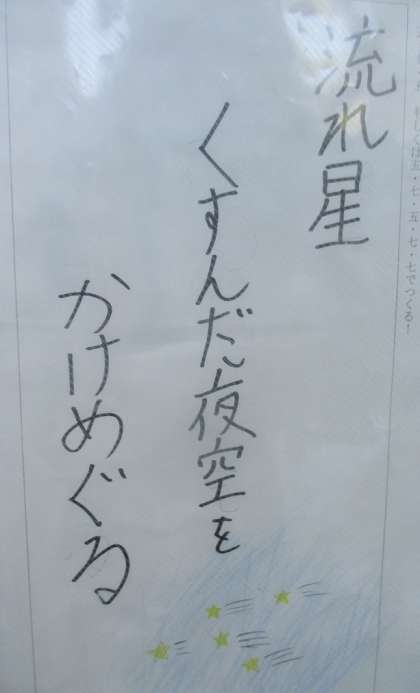 は五・七・五・七・七でつくる！
流れ星
くすんだ夜空を
かけめぐる